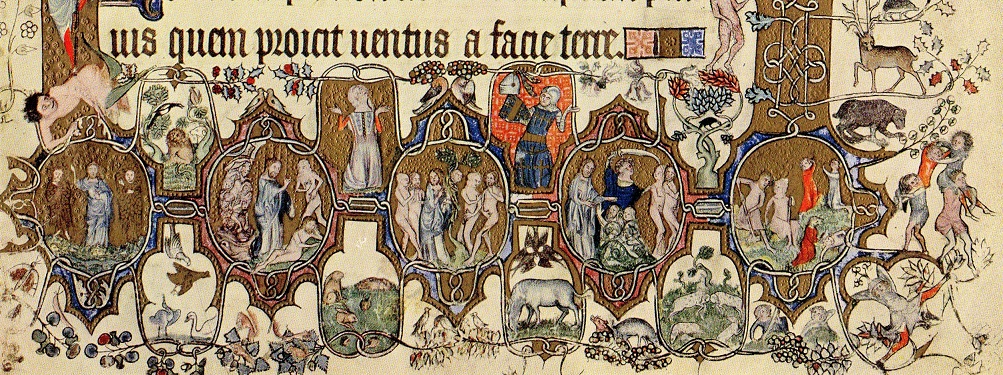 uis quem proicit uentus a facie terre.